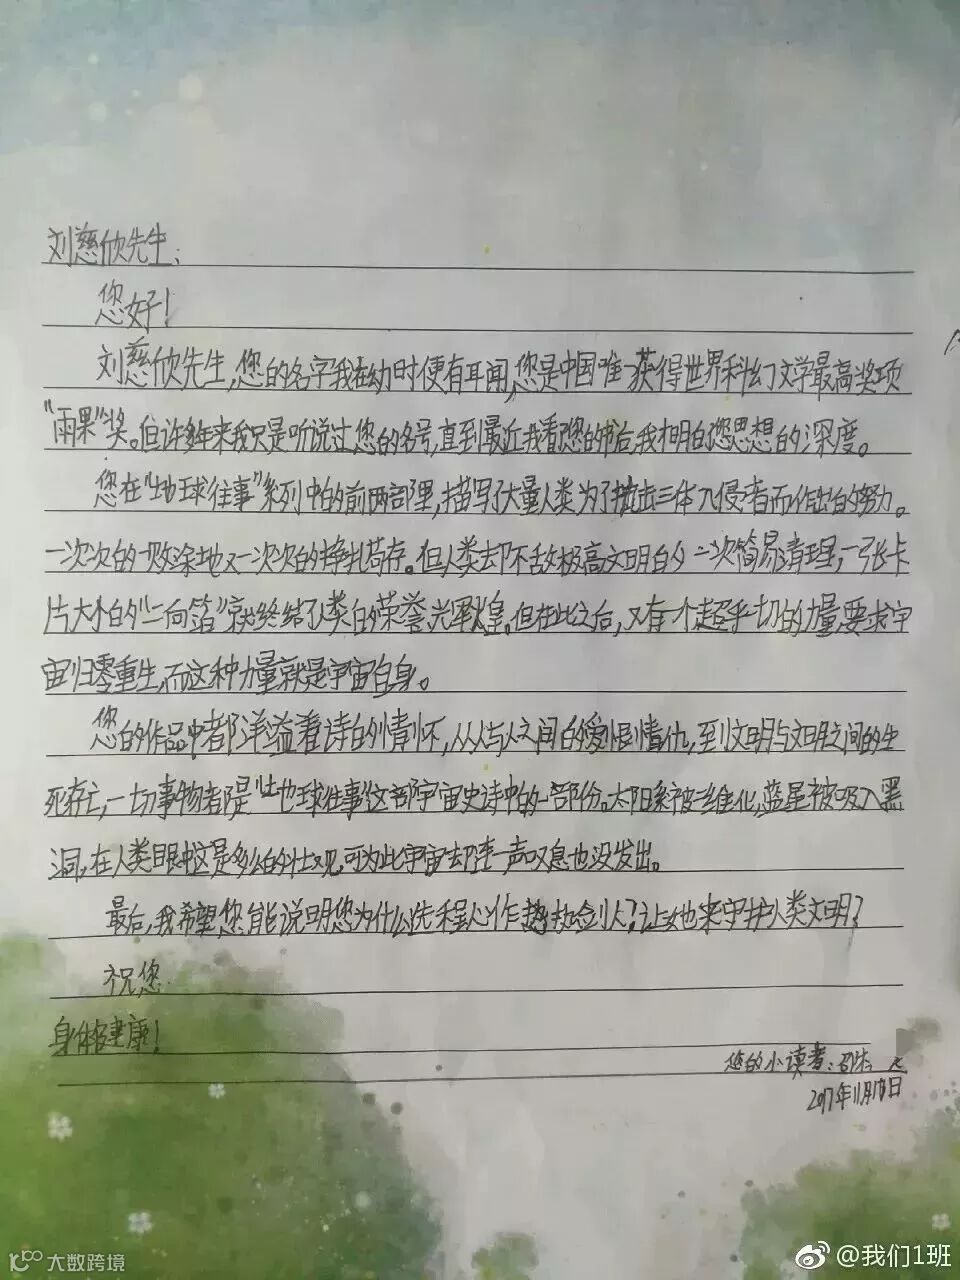 刘慈欣先生:
您好!
刘慈欣先生,您的名字我在幼时便有耳闻,您是中国唯一获得世界科幻文学最高奖项
“雨果”奖。但许多年来我只是听说过您的名号,直到最近我看您的书后,我才明白您思想的深度。
您在“地球往事”系列中的前两部里,描写了大量人类为了抗击三体入侵者而作出的努力。
一次次的一败涂地又一次次的挣扎苟存。但人类却不敌极高文明的一次简易清理,一张卡
片大小的“二向箔”就终结了人类的荣誉光辉煌。但在此之后,又有一个超乎一切的力量要求宇
宙归零重生,而这种力量就是宇宙自身。
您的作品中都洋溢着诗的情怀,从人与人之间的爱恨情仇,到文明与文明之间的生
死存亡,一切事物都是“地球往事”这部宇宙史诗中的一部份。太阳系被二维化,蓝星被吸入黑
洞,在人类眼中这是多么的壮观,可为此宇宙却连一声叹息也没发出。
最后,我希望您能说明您为什么选程心作执剑人?让她来守护人类文明?
祝您
身体健康!
您的小读者:
2017年11月18日
大数跨境
@我们1班